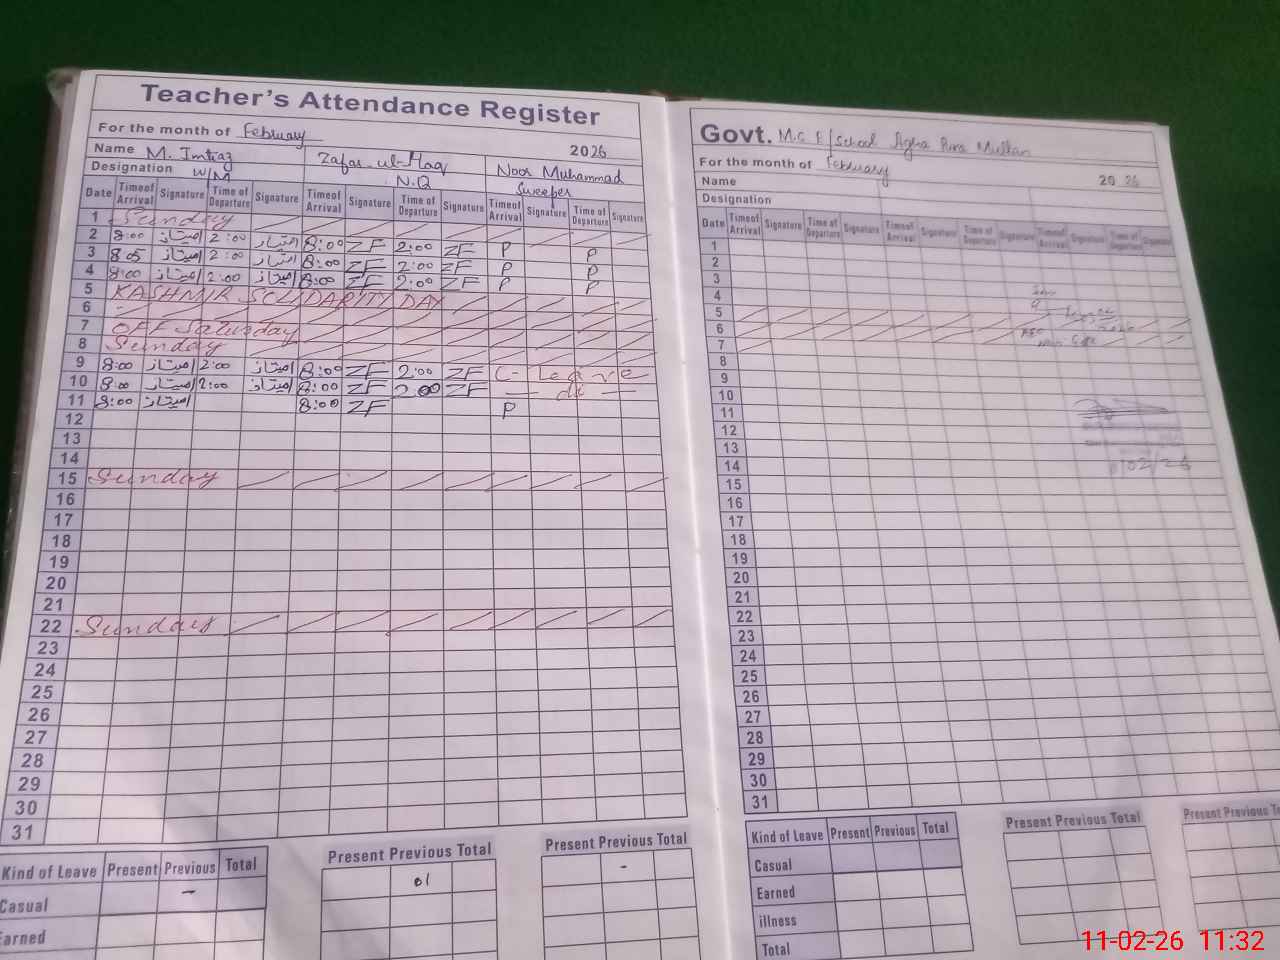 Teacher's Attendance Register
For the month of February 2026
Name M. Imtiaz Zafar ul-Haq Noor Muhammad
Designation W/M N.Q Sweeper
Date Timeof Arrival Signature Time of Departure Signature Timeof Arrival Signature Time of Departure Signature Timeof Arrival Signature Time of Departure Signature
1 Sunday
2 8:00 امتیاز 2:00 امتیاز 8:00 ZF 2:00 ZF P P
3 8:05 امتیاز 2:00 امتیاز 8:00 ZF 2:00 ZF P P
4 8:00 امتیاز 2:00 امتیاز 8:00 ZF 2:00 ZF P P
5 KASHMIR SOLIDARITY DAY
6
7 OFF Saturday
8 Sunday
9 8:00 امتیاز 2:00 امتیاز 8:00 ZF 2:00 ZF C-Leave
10 8:00 امتیاز 2:00 امتیاز 8:00 ZF 2:00 ZF — do —
11 8:00 امتیاز 8:00 ZF P
12
13
14
15 Sunday
16
17
18
19
20
21
22 Sunday
23
24
25
26
27
28
29
30
31
Kind of Leave Present Previous Total Present Previous Total Present Previous Total
Casual - 01 -
Earned
Govt. M.C E/School Agha Pura Multan
For the month of February 2026
Name
Designation
Date Timeof Arrival Signature Time of Departure Signature Timeof Arrival Signature Time of Departure Signature Timeof Arrival Signature Time of Departure Signature
1
2
3
4
5
6
7
8
9
10
11
12
13
14
15
16
17
18
19
20
21
22
23
24
25
26
27
28
29
30
31
Kind of Leave Present Previous Total Present Previous Total Present Previous
Casual
Earned
illness
Total
11-02-26 11:32